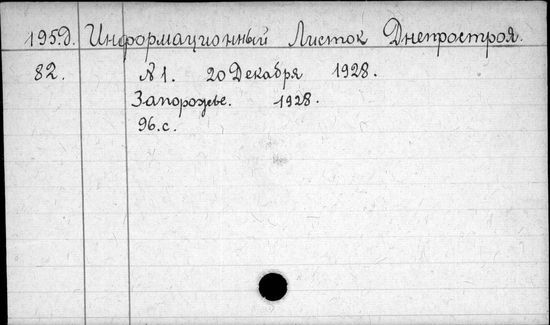 195д. Информационный Листок Днепростроя.
82. N 1. 20 Декабря 1928.
Запорожье. 1928.
96. с.